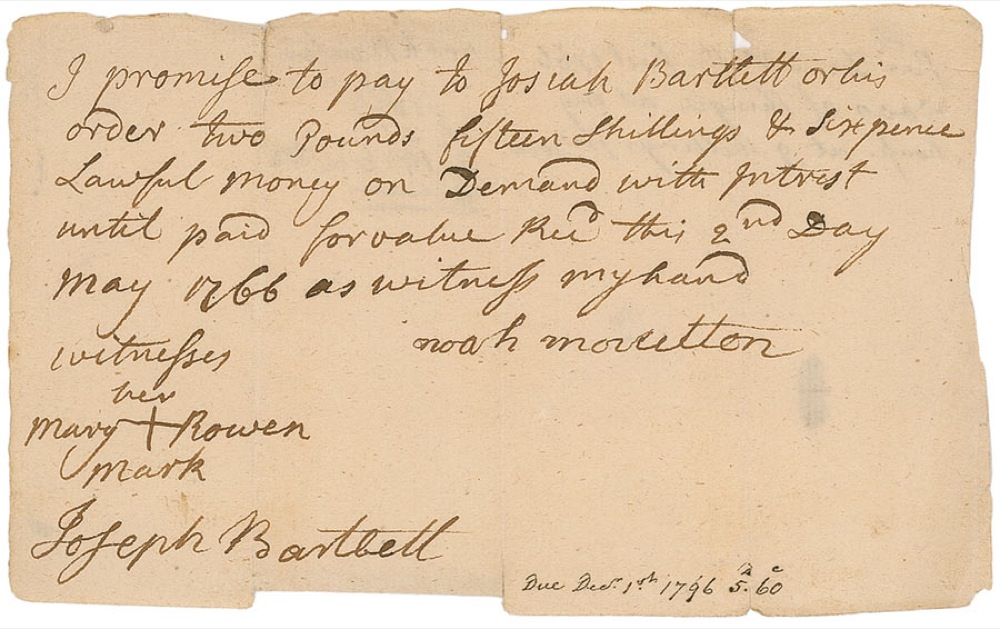 I promise to pay to Josiah Bartlett or his
order two Pounds fifteen Shillings & Sixpence
Lawful money on Demand with Intrest
until paid for value Recd this 2nd Day
May 1766 as witness my hand
noah
witnesses
her
Mary + Rowen
mark
Joseph Bartlett
Due Decr. 1st 1796 5. 60